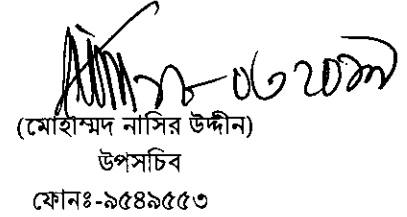 (মোহাম্মদ নাসির উদ্দীন)
উপসচিব
ফোনঃ-৯৫৪৯৫৫৩